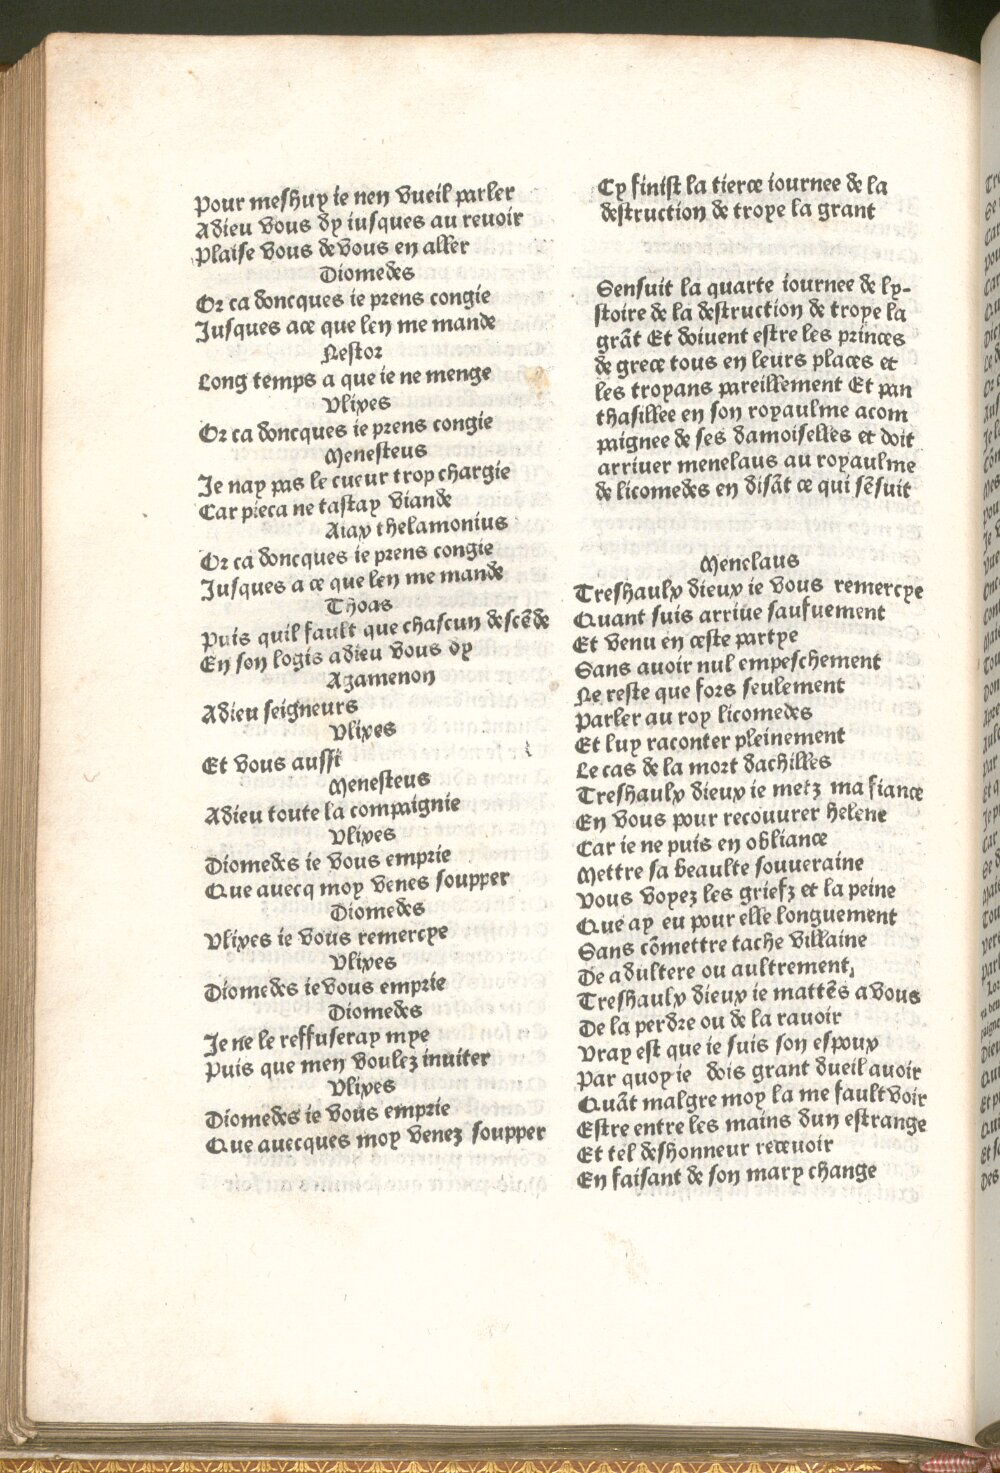 Pour meshuy ie nen vueil parler
Adieu vous dy iusques au reuoir
Plaise vous de vous en aller
Diomedes
Or ca doncques ie prens congie
Jusques a ce que len me mande
Nestor
Long temps a que ie ne menge
Vlixes
Or ca doncques ie prens congie
Menesteus
Je nay pas le cueur trop chargie
Car pieca ne tastay viande
Aiax thelamonius
Or ca doncques ie prens congie
Jusques a ce que len me mande
Thoas
Puis quil fault que chascun descẽde
En son logis adieu vous dy
Agamenon
Adieu seigneurs
Vlixes
Et vous aussi
Menesteus
Adieu toute la compaignie
Vlixes
Diomedes ie vous emprie
Que auecq moy venes soupper
Diomedes
Vlixes ie vous remercye
Vlixes
Diomedes ie vous emprie
Diomedes
Je ne le reffuseray mye
Puis que men voulez inuiter
Vlixes
Diomedes ie vous emprie
Que auecques moy venez soupper
Cy finist la tierce iournee de la
destruction de troye la grant
Sensuit la quarte iournee de ly-
stoire de la destruction de troye la
grãt Et doiuent estre les princes
de grece tous en leurs places et
les troyans pareillement Et pan
thasillee en son royaulme acom
paignee de ses damoiselles et doit
arriuer menelaus au royaulme
de licomedes en disãt ce qui sẽsuit
Menelaus
Treshaulx dieux ie vous remercye
Quant suis arriue saufuement
Et venu en ceste partye
Sans auoir nul empeschement
Ne reste que fors seulement
Parler au roy licomedes
Et luy raconter pleinement
Le cas de la mort dachilles
Treshaulx dieux ie metz ma fiance
En vous pour recouurer helene
Car ie ne puis en obliance
Mettre sa beaulte souueraine
Vous voyez les griefz et la peine
Que ay eu pour elle longuement
Sans cõmettre tache villaine
De adultere ou aultrement
Treshaulx dieux ie mattẽs a vous
De la perdre ou de la rauoir
Vray est que ie suis son espoux
Par quoy ie dois grant dueil auoir
Quãt malgre moy la me fault voir
Estre entre les mains dun estrange
Et tel deshonneur receuoir
En faisant de son mary change